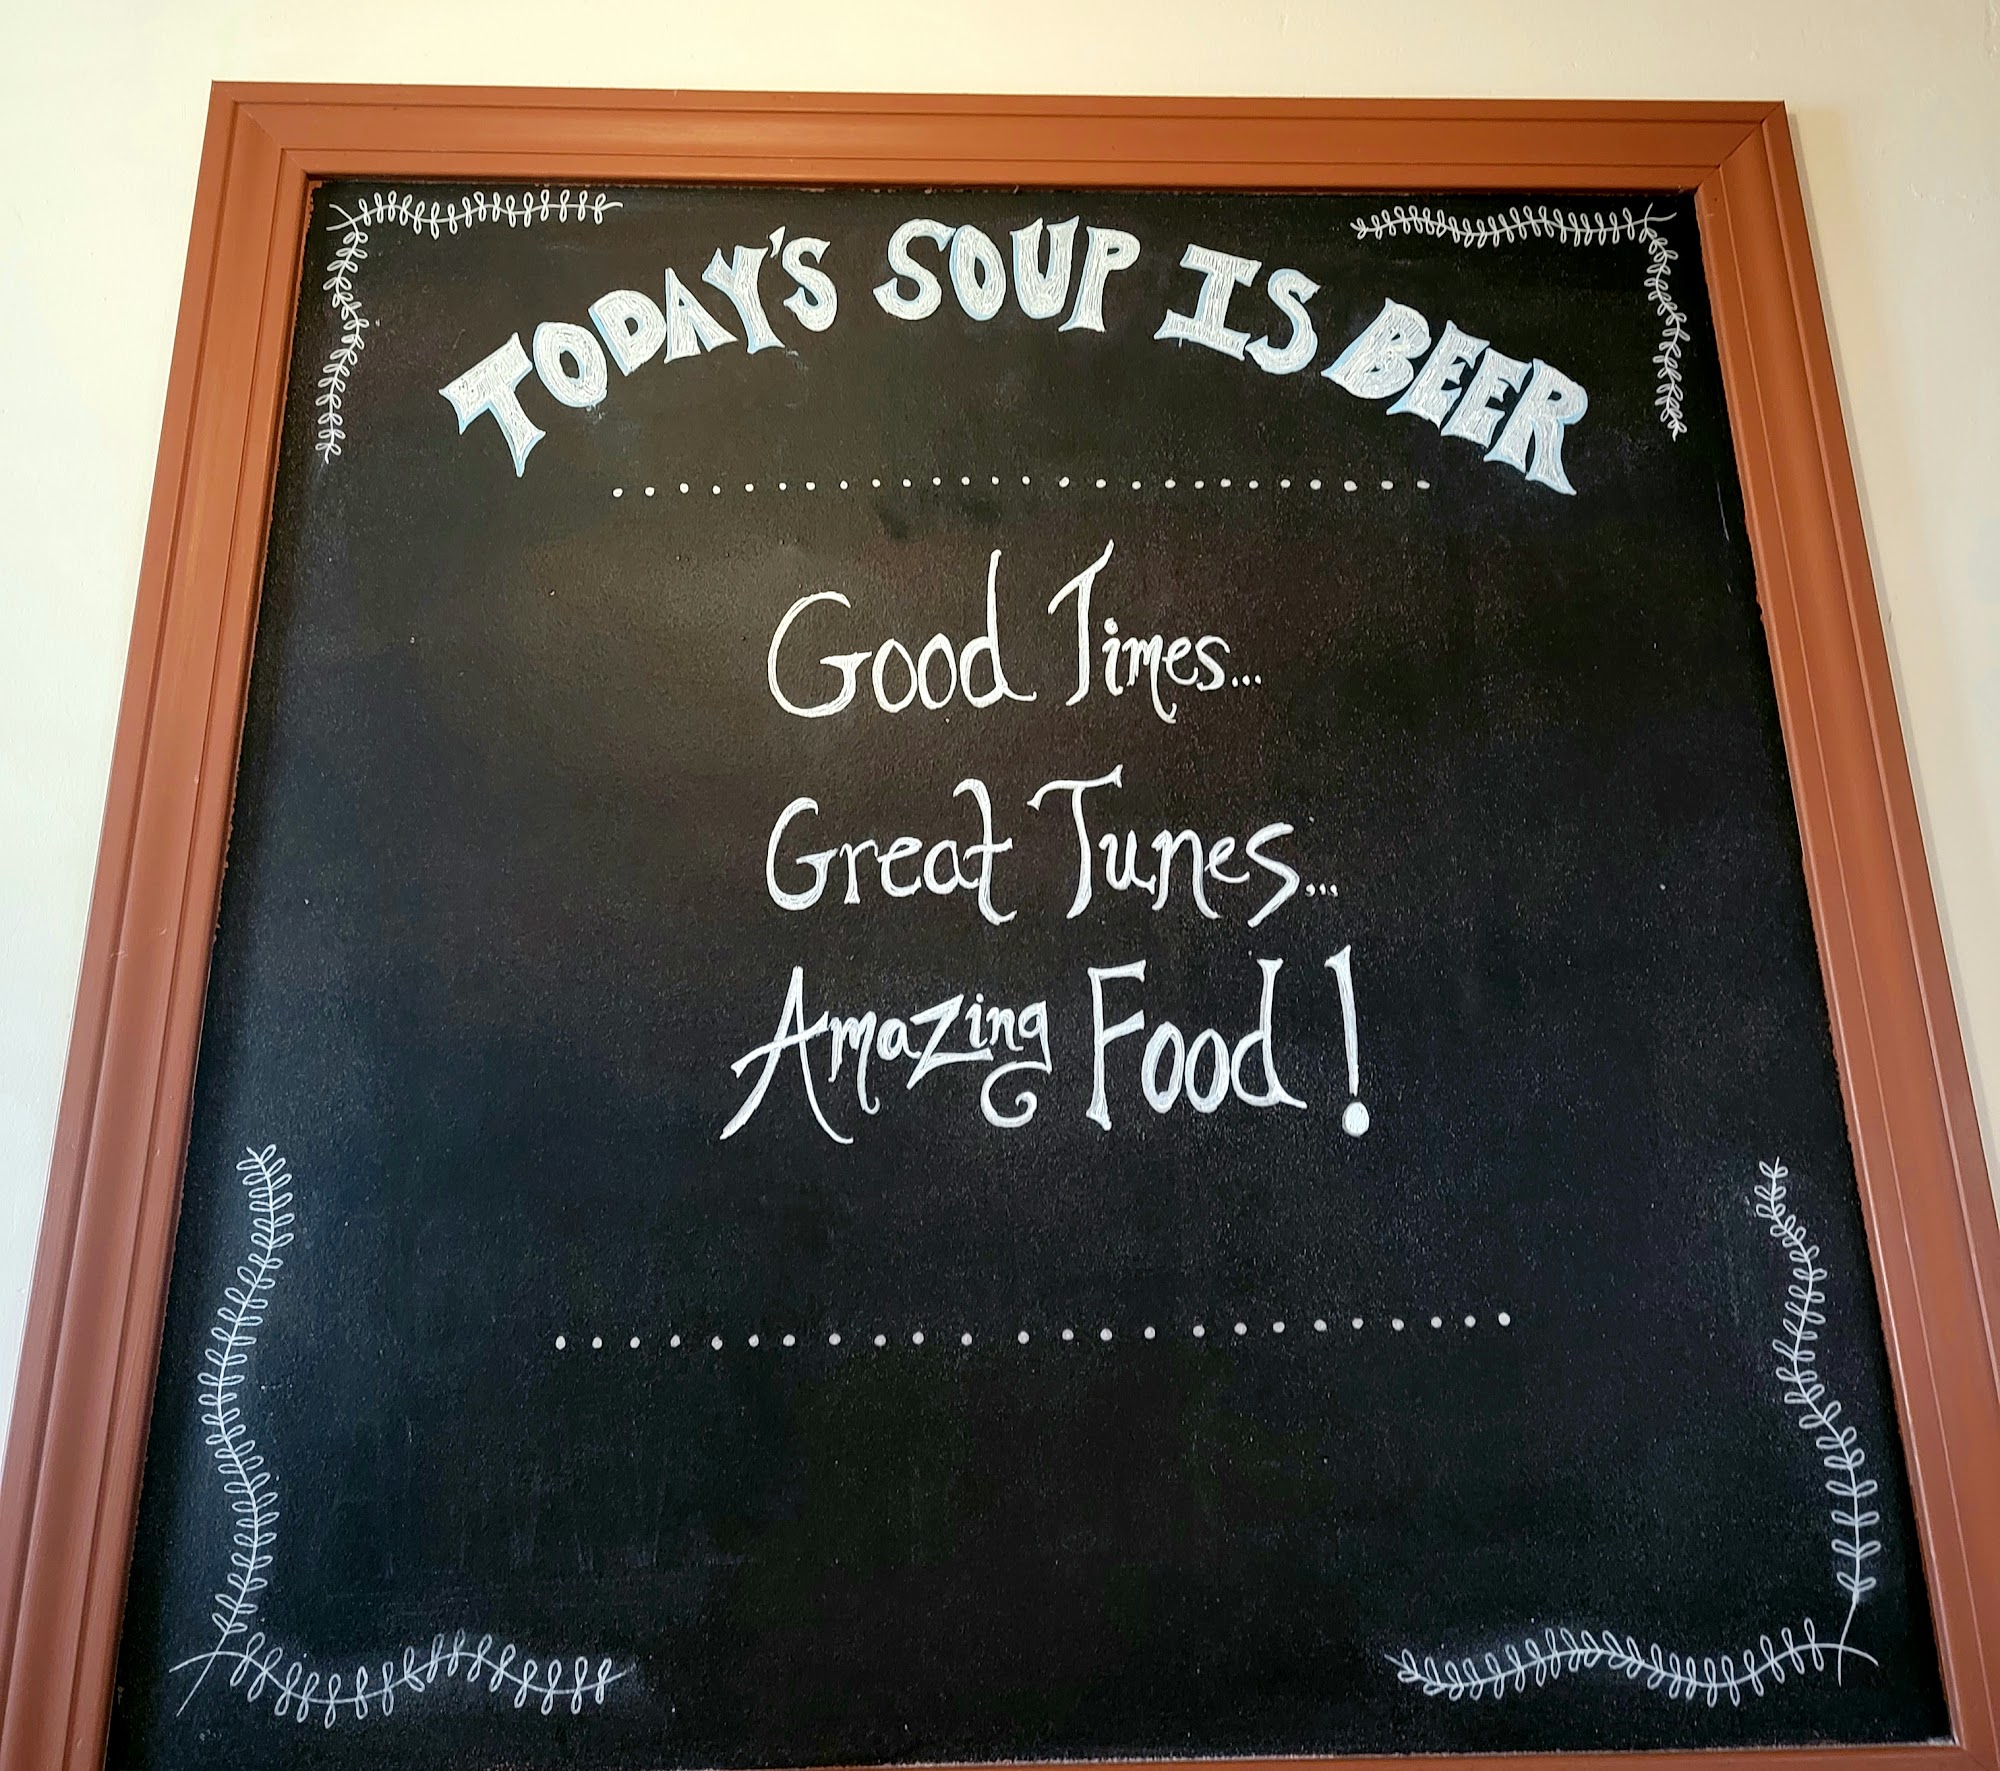 TODAY'S SOUP IS BEER
Good Times...
Great Tunes...
Amazing Food!